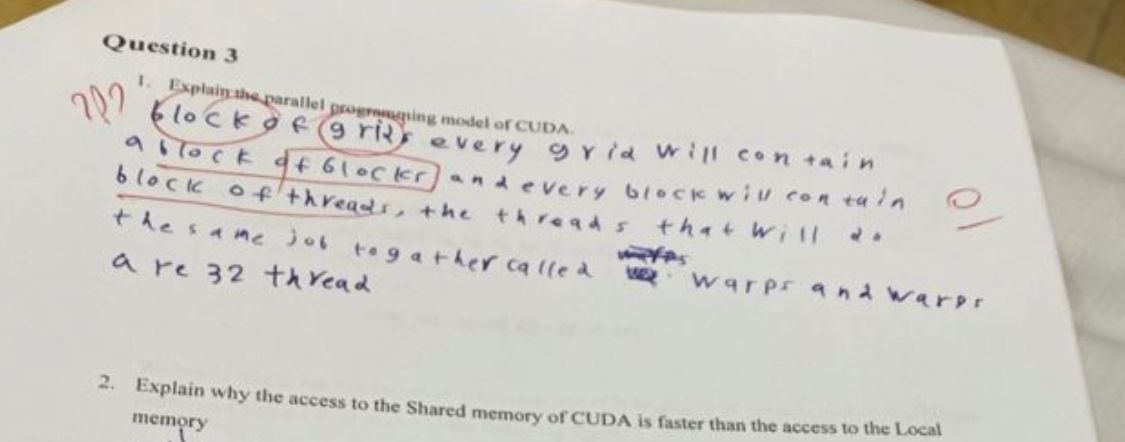 Question 3
1. Explain the parallel programming model of CUDA.
??? block of grids every grid will contain
a block of blocks and every block will contain 0
block of threads, the threads that will do
the same job togather called warps warps and warps
are 32 thread
2. Explain why the access to the Shared memory of CUDA is faster than the access to the Local
memory